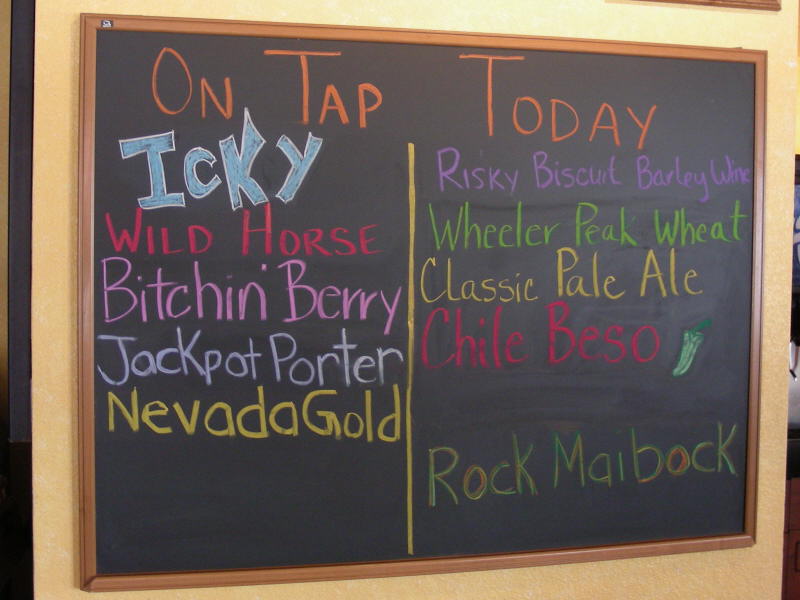 On Tap Today
Icky
Wild Horse
Bitchin' Berry
Jackpot Porter
Nevada Gold
Risky Biscuit Barley Wine
Wheeler Peak Wheat
Classic Pale Ale
Chile Beso
Rock Maibock